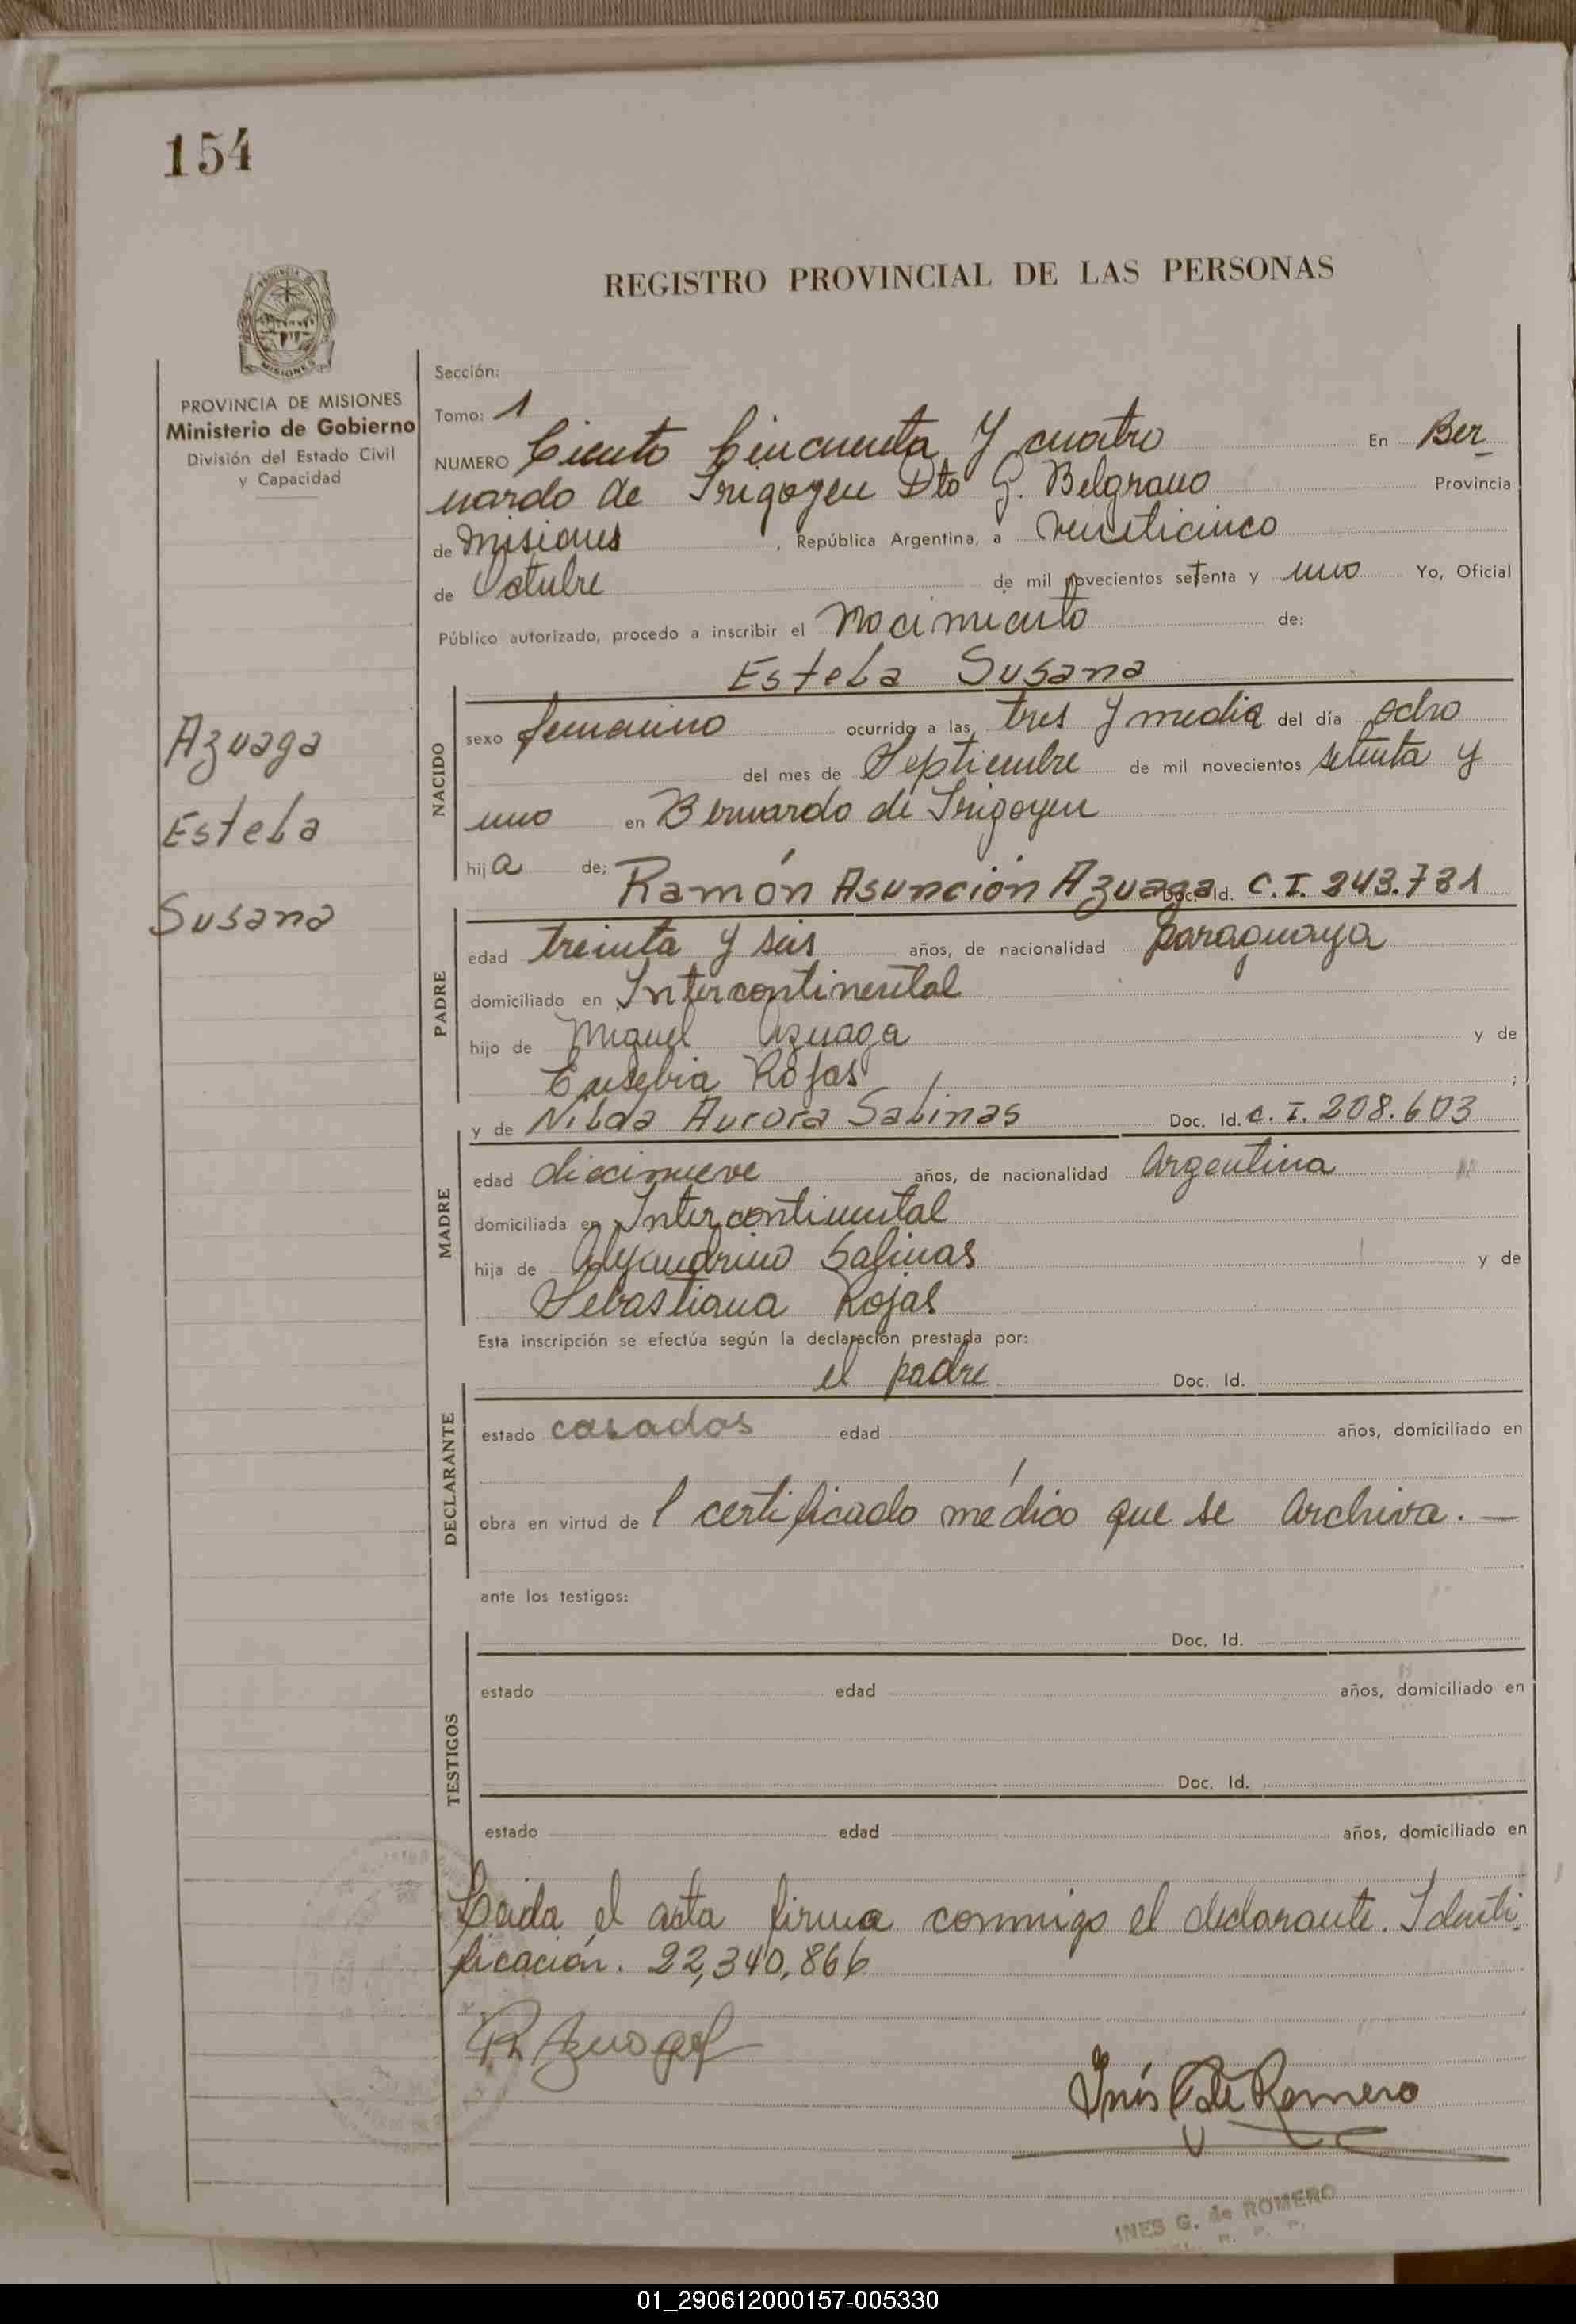 154
REGISTRO PROVINCIAL DE LAS PERSONAS
PROVINCIA DE MISIONES
Ministerio de Gobierno
División del Estado Civil
y Capacidad
Azuaga
Estela
Susana
Sección:
Tomo: 1
NUMERO Ciento Cincuenta y cuatro En Ber-
nardo de Irigoyen Dto G. Belgrano Provincia
de Misiones, República Argentina, a veinticinco
de Octubre de mil novecientos setenta y uno Yo, Oficial
Público autorizado, procedo a inscribir el Nacimiento de:
Estela Susana
NACIDO
sexo femenino ocurrido a las tres y media del día ocho
del mes de Septiembre de mil novecientos setenta y
uno en Bernardo de Irigoyen
hija de; Ramón Asunción Azuaga Doc. Id. C.I. 243.731
PADRE
edad treinta y seis años, de nacionalidad paraguaya
domiciliado en Intercontinental
hijo de Miguel Azuaga y de
Eusebia Rojas ;
y de Nilda Aurora Salinas Doc. Id. C.I. 208.603
MADRE
edad diecinueve años, de nacionalidad Argentina
domiciliada en Intercontinental
hija de Alejandrino Salinas y de
Sebastiana Rojas
Esta inscripción se efectúa según la declaración prestada por:
el padre Doc. Id.
DECLARANTE
estado casados edad años, domiciliado en
obra en virtud de l certificado médico que se Archiva. —
ante los testigos:
TESTIGOS
Doc. Id.
estado edad años, domiciliado en
Doc. Id.
estado edad años, domiciliado en
Leida el acta firma conmigo el declarante. Identi-
ficación. 22,340,866
R Azuaga
Inés G de Romero
INES G. de ROMERO
01_290612000157-005330